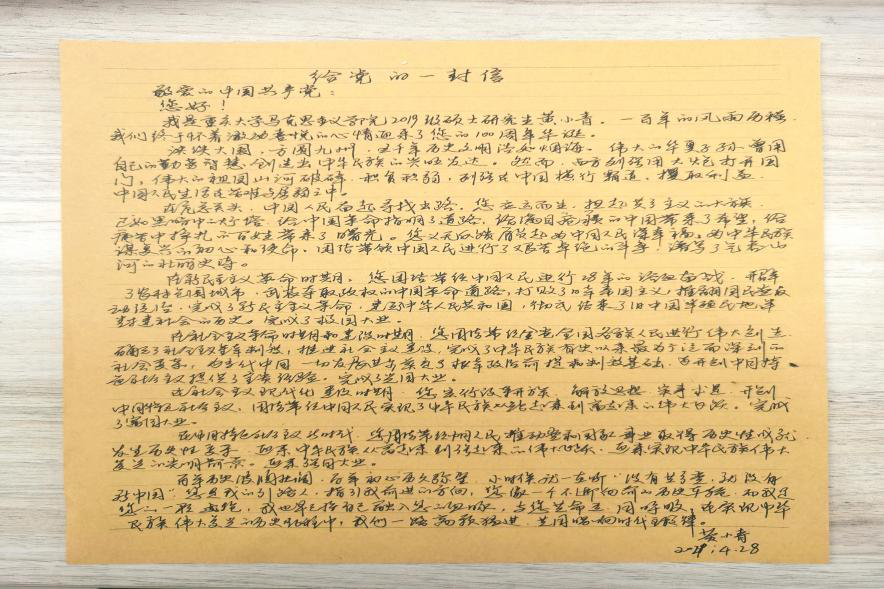 给党的一封信
敬爱的中国共产党：
您好！
我是重庆大学马克思主义学院2019级硕士研究生黄小青。一百年的风雨历程，
我们终于怀着激动喜悦的心情迎来了您的100周年华诞。
泱泱大国，方圆九州，五千年历史文明浩如烟海。伟大的华夏子孙，曾用
自己的勤劳智慧创造出中华民族的兴旺发达。然而，西方列强用大炮打开国
门，伟大的祖国山河破碎，积贫积弱，列强在中国横行霸道，攫取利益，
中国人民生活在苦难与屈辱之中。
在危急关头，中国人民奋起寻找出路，您应运而生，担起共产主义的大旗，
已如黑暗中的灯塔，给中国革命指明了道路，给满目疮痍的中国带来了希望，给
痛苦中挣扎的百姓带来了曙光。您义无反顾肩负起为中国人民谋幸福，为中华民族
谋复兴的初心和使命，团结带领中国人民进行了艰苦卓绝的斗争，谱写了气吞山
河的壮丽史诗。
在新民主主义革命时期，您团结带领中国人民进行28年的浴血奋战，开辟
了农村包围城市，武装夺取政权的中国革命道路，打败了日本帝国主义，推翻国民党反
动统治，完成了新民主主义革命，建立中华人民共和国，彻底结束了旧中国半殖民地半
封建社会的历史。完成了救国大业。
在社会主义革命时期和建设时期，您团结带领全党全国各族人民进行伟大创造
确立了社会主义基本制度，推进社会主义建设，完成了中华民族有史以来最为广泛而深刻的
社会变革，为当代中国一切发展进步奠定了根本政治前提和制度基础，为开创中国特
色社会主义提供了宝贵经验。完成了兴国大业。
在社会主义现代化建设时期，您实行改革开放，解放思想，实事求是，开创
中国特色社会主义，团结带领中国人民实现了中华民族从站起来到富起来的伟大飞跃。完成
了富国大业。
在中国特色社会主义新时代，您团结带领中国人民推动党和国家事业取得历史性成就
发生历史性变革，迎来中华民族从富起来到强起来的伟大飞跃，迎来实现中华民族伟大
复兴的光明前景。迎来强国大业。
百年历史波澜壮阔，百年初心历久弥坚。小时候就一直听"没有共产党，就没有
新中国"，您是我的引路人，指引我前进的方向，
民族伟大复兴的历史征程中，我们一路高歌猛进，共同唱响时代主旋律。
黄小青
2021.4.28